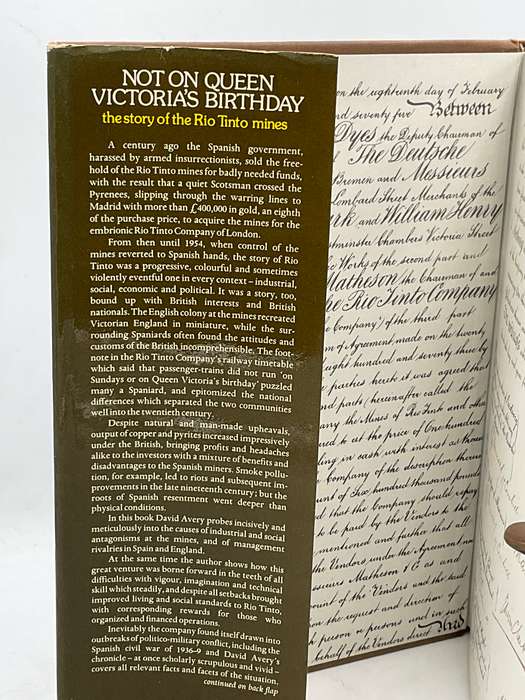 NOT ON QUEEN
VICTORIA'S BIRTHDAY
the story of the Rio Tinto mines
A century ago the Spanish government,
harassed by armed insurrectionists, sold the free-
hold of the Rio Tinto mines for badly needed funds,
with the result that a quiet Scotsman crossed the
Pyrenees, slipping through the warring lines to
Madrid with more than £400,000 in gold, an eighth
of the purchase price, to acquire the mines for the
embrionic Rio Tinto Company of London.
From then until 1954, when control of the
mines reverted to Spanish hands, the story of Rio
Tinto was a progressive, colourful and sometimes
violently eventful one in every context – industrial,
social, economic and political. It was a story, too,
bound up with British interests and British
nationals. The English colony at the mines recreated
Victorian England in miniature, while the sur-
rounding Spaniards often found the attitudes and
customs of the British incomprehensible. The foot-
note in the Rio Tinto Company's railway timetable
which said that passenger-trains did not run 'on
Sundays or on Queen Victoria's birthday' puzzled
many a Spaniard, and epitomized the national
differences which separated the two communities
well into the twentieth century.
Despite natural and man-made upheavals,
output of copper and pyrites increased impressively
under the British, bringing profits and headaches
alike to the investors with a mixture of benefits and
disadvantages to the Spanish miners. Smoke pollu-
tion, for example, led to riots and subsequent im-
provements in the late nineteenth century; but the
roots of Spanish resentment went deeper than
physical conditions.
In this book David Avery probes incisively and
meticulously into the causes of industrial and social
antagonisms at the mines, and of management
rivalries in Spain and England.
At the same time the author shows how this
great venture was borne forward in the teeth of all
difficulties with vigour, imagination and technical
skill which steadily, and despite all setbacks brought
improved living and social standards to Rio Tinto,
with corresponding rewards for those who
organized and financed operations.
Inevitably the company found itself drawn into
outbreaks of politico-military conflict, including the
Spanish civil war of 1936-9 and David Avery's
chronicle – at once scholarly scrupulous and vivid –
covers all relevant facts and facets of the situation,
continued on back flap
on the eighteenth day of February
seventy five Between
Dyes the Deputy Chairman of
The Deutsche
Bremen and Messieurs
Lombard Street Merchants of the
and William Henry
Chambers Victoria Street
Works of the second part and
Matheson the Chairman of and
Rio Tinto Company
Company") of the third part
of Agreement made on the twenty
eight hundred and seventy three by
parties hereto it was agreed that
parts) hereinafter called the
the Mines of Rio Tinto and other
at the price of One hundred
in cash with interest as therein
Company of the description therein
of Six hundred thousand pounds
that the Company should repay
to be paid by the Vendors to the
mentioned and further that all
the Vendors under the Agreement
Matheson & Co as and
of the Vendors and the said
the request and direction of
person or persons and in such
behalf of the Vendors direct